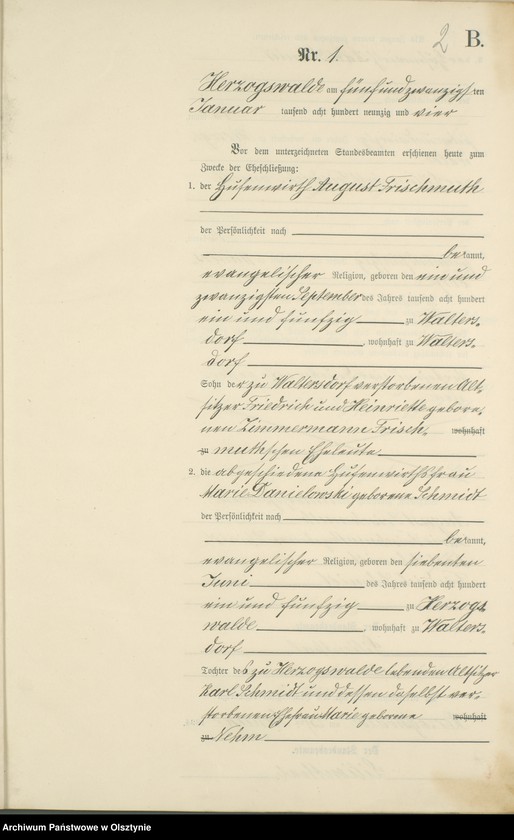 2 B.
Nr. 1.
Herzogswalde am fünfundzwanzigsten
Januar tausend acht hundert neunzig und vier
Vor dem unterzeichneten Standesbeamten erschienen heute zum
Zwecke der Eheschließung:
1. der Hufenwirth August Frischmuth
der Persönlichkeit nach
bekannt,
evangelischer Religion, geboren den ein und
zwanzigsten September des Jahres tausend acht hundert
ein und fünfzig zu Walters-
dorf, wohnhaft zu Walters-
dorf
Sohn der zu Waltersdorf verstorbenen Alt-
sitzer Friedrich und Heinriette gebore-
nen Zimmermann Frisch- wohnhaft
zu muthschen Eheleute
2. die abgeschiedene Hufenwirthsfrau
Marie Danielowski geborene Schmidt
der Persönlichkeit nach
bekannt,
evangelischer Religion, geboren den siebenten
Juni des Jahres tausend acht hundert
ein und fünfzig zu Herzogs-
walde, wohnhaft zu Walters-
dorf
Tochter des zu Herzogswalde lebenden Altsitzer
Karl Schmidt und dessen daselbst ver-
storbenen Ehefrau Marie geborene wohnhaft
zu Nehm
Archiwum Państwowe w Olsztynie